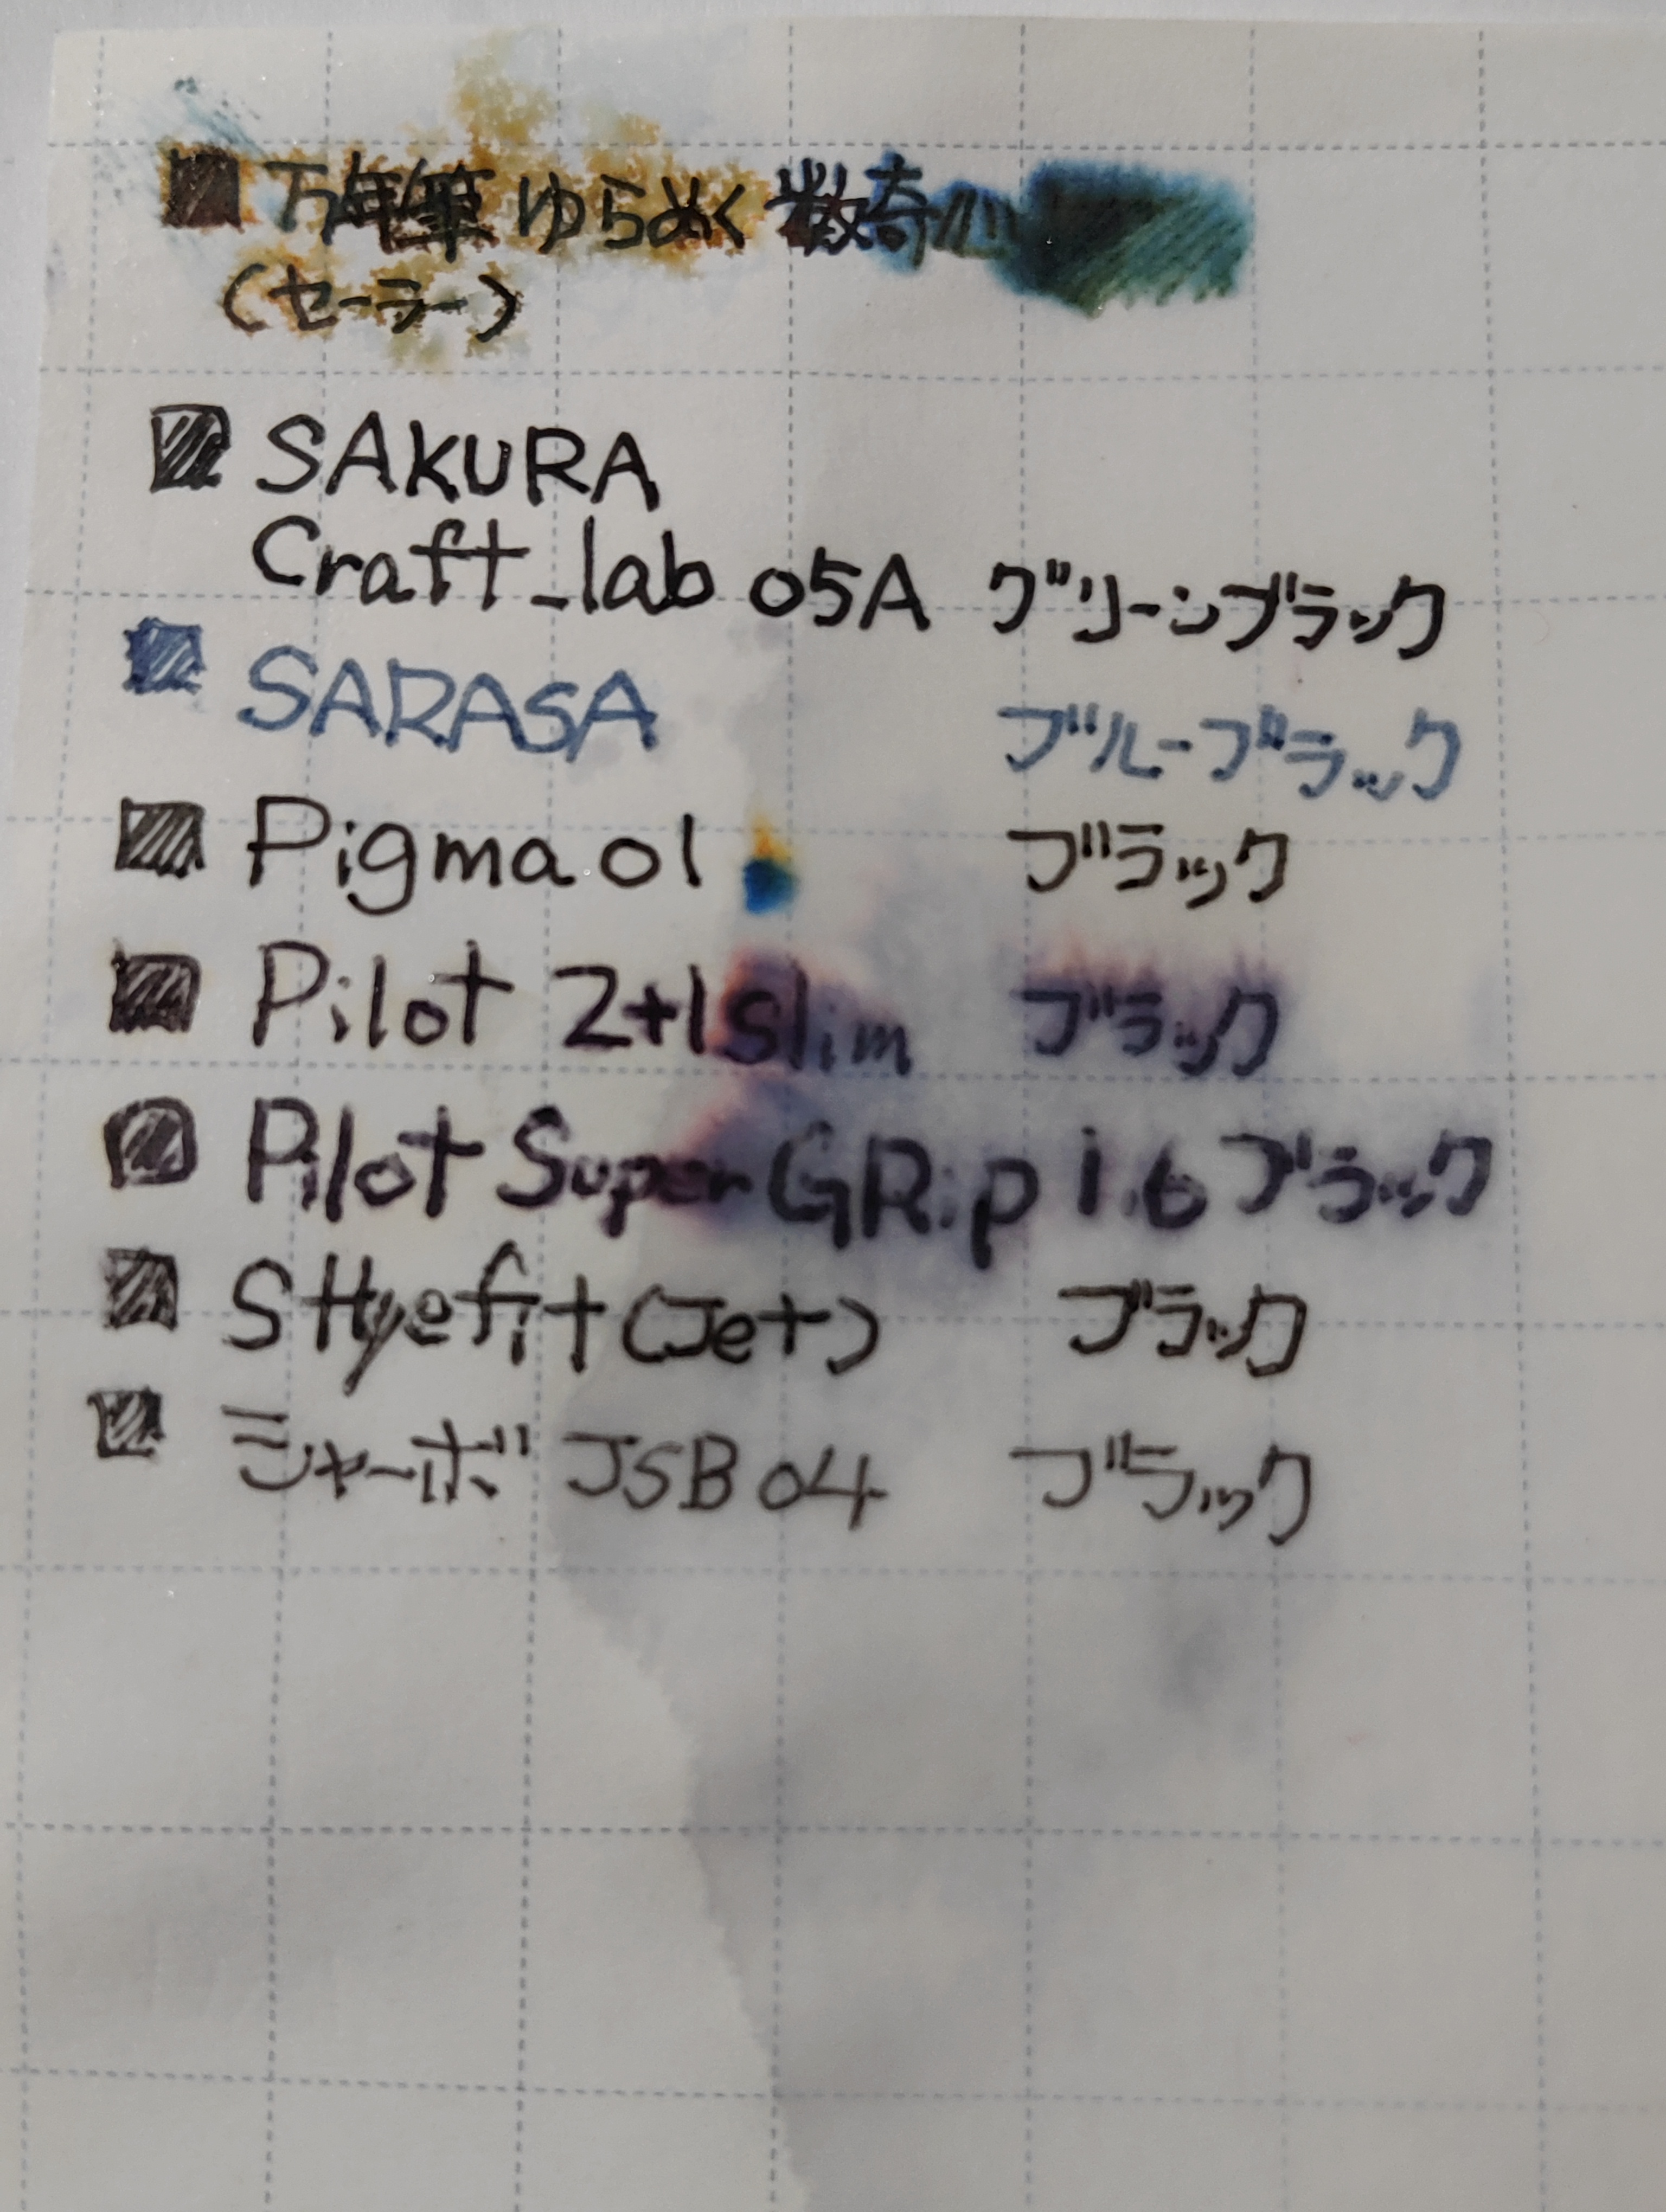 万年筆 ゆらめく 数奇
(セーラー)
SAKURA
Craft_lab 05A グリーンブラック
SARASA ブルーブラック
Pigma 01 ブラック
Pilot 2+1 Slim ブラック
Pilot Super GRip 1.6 ブラック
Styefit (Jet) ブラック
シャーボ JSB 04 ブラック